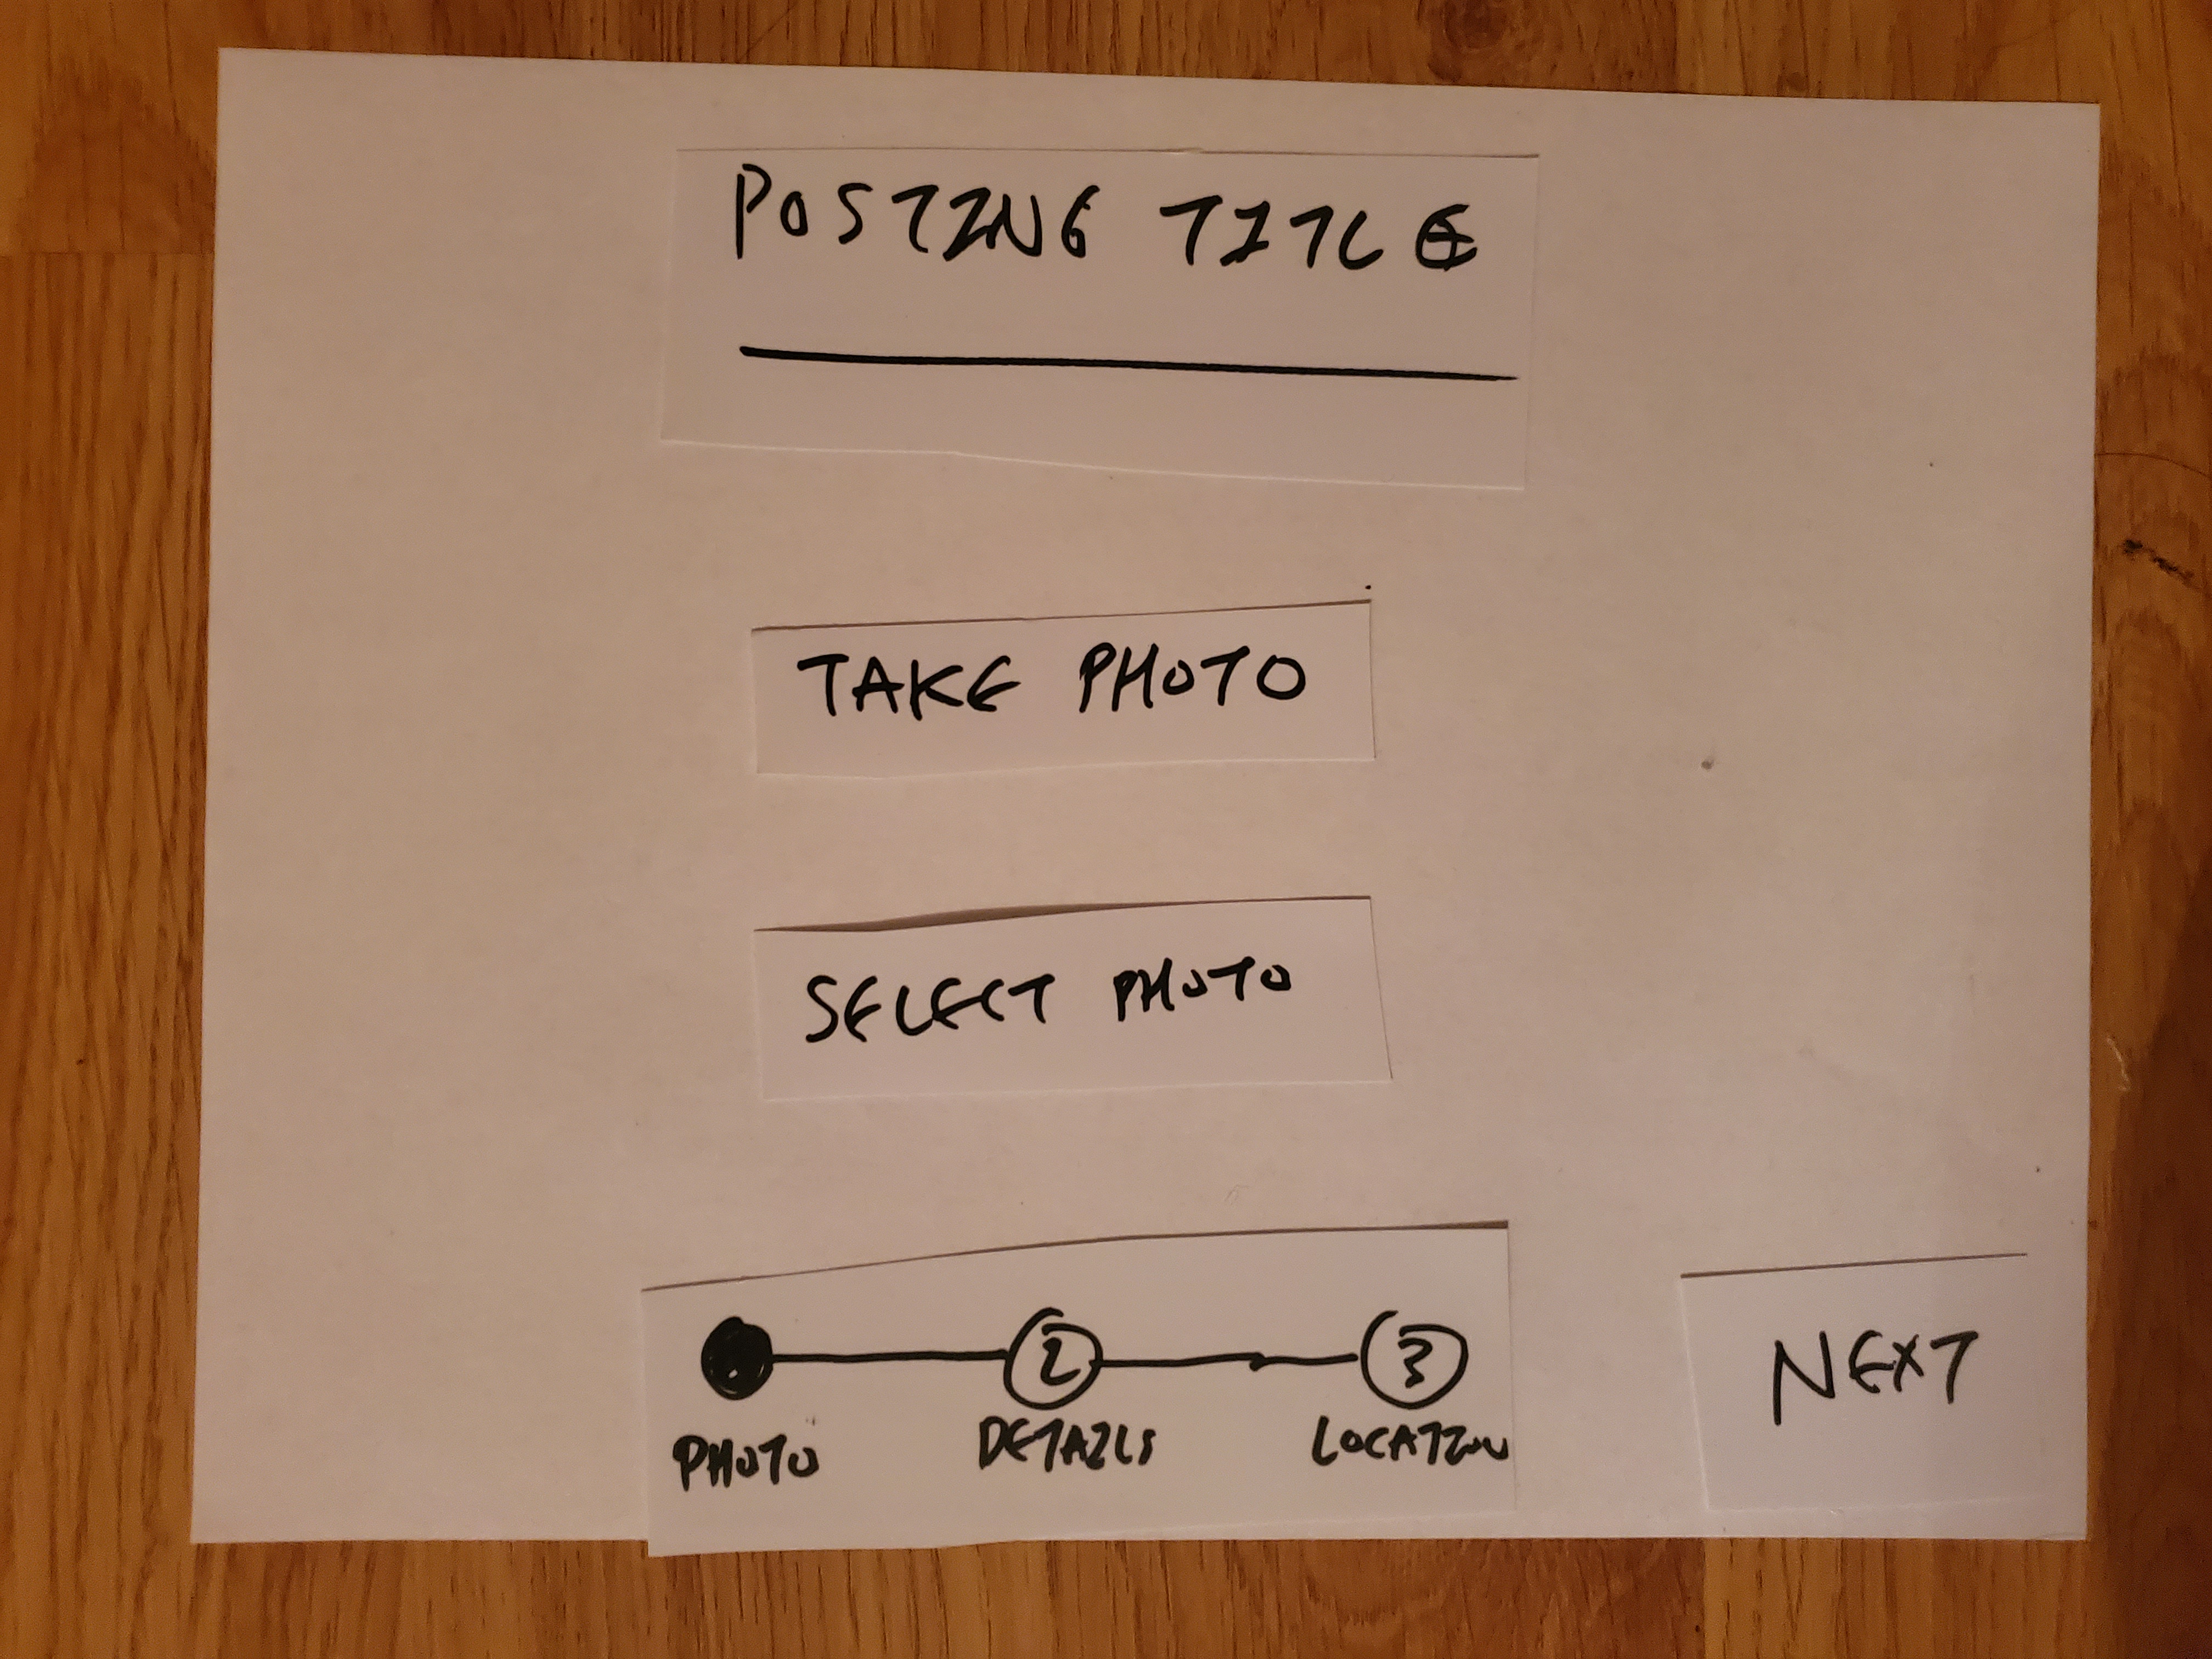 POSTING TITLE
TAKE PHOTO
SELECT PHOTO
2 3
PHOTO DETAILS LOCATION
NEXT